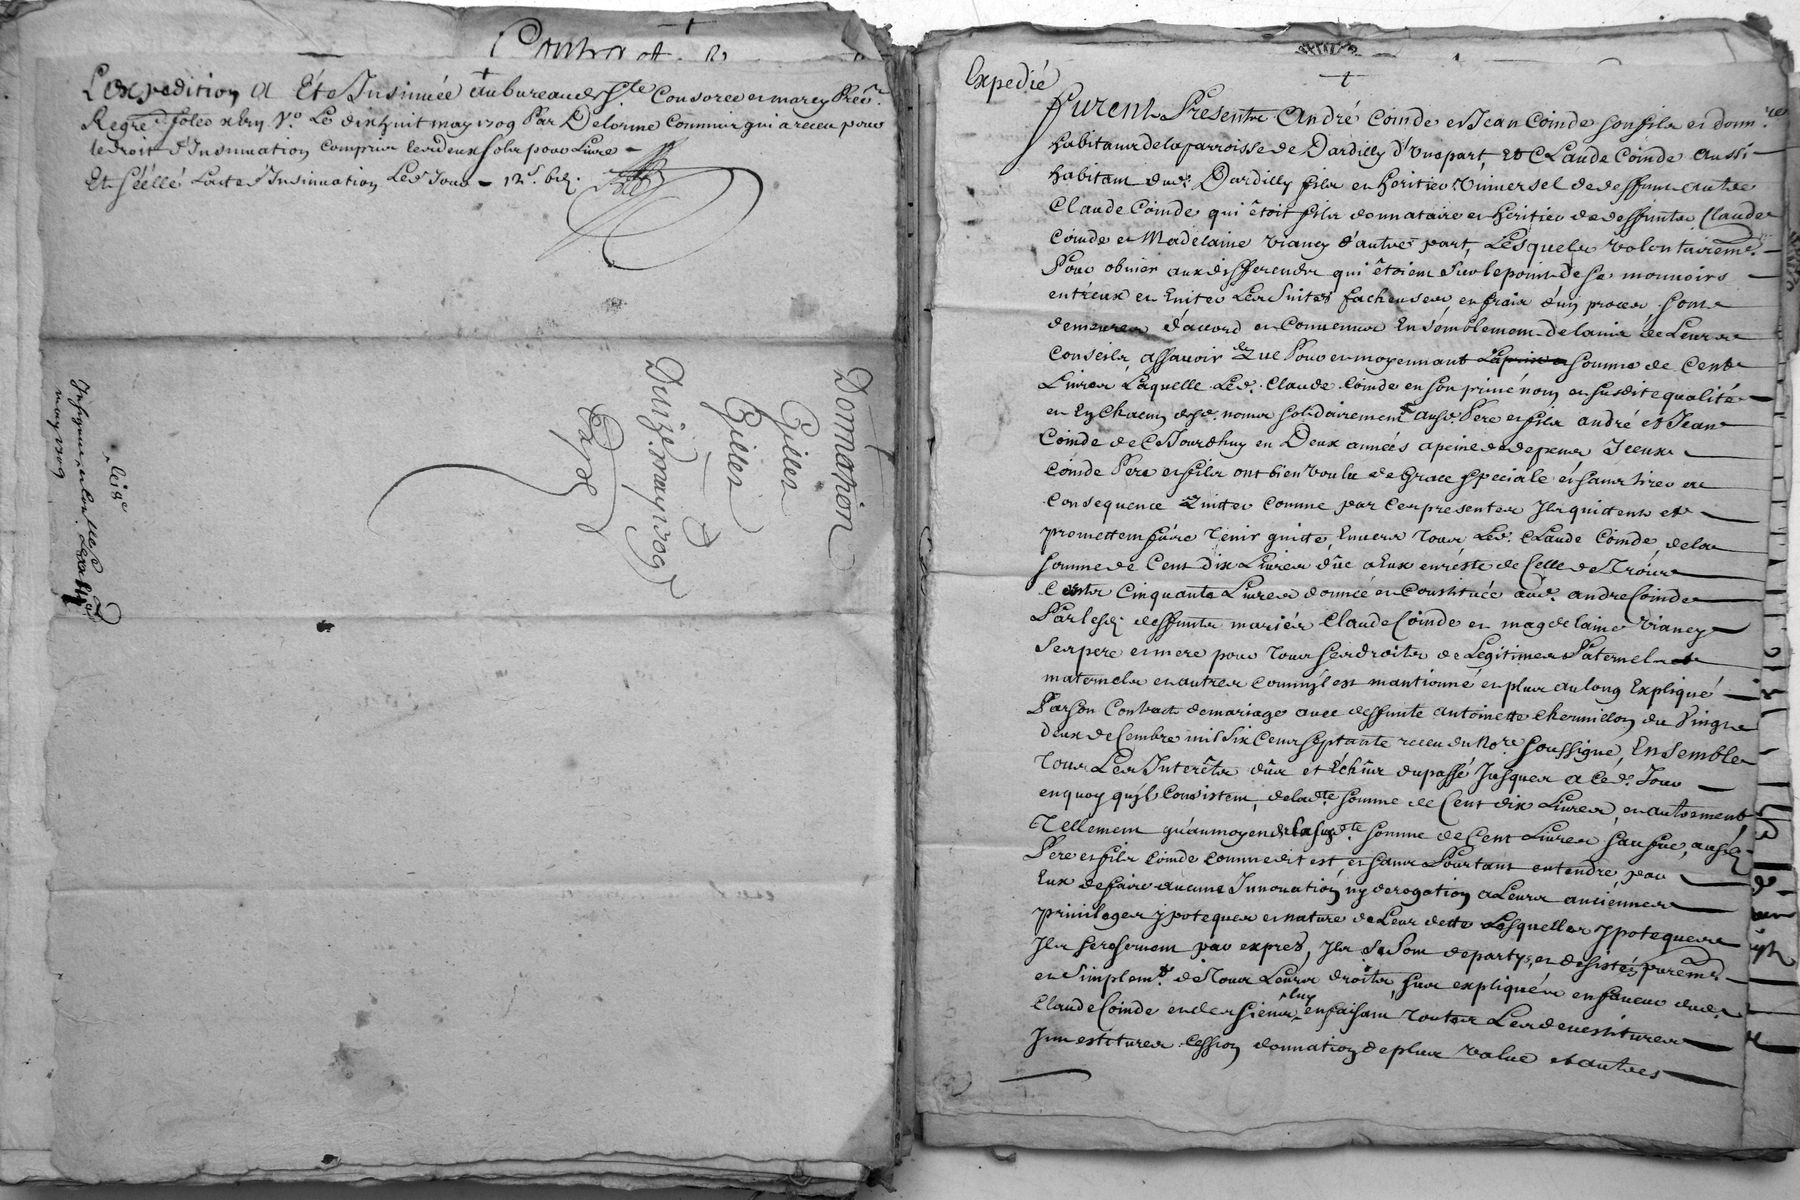 Contract
L'expedition a Eté Insinuée au bureau de
Regre folio V.o Le dix huit may 1709 Par Delorme Commis qui a receu pour
le droit d'Insinuation compris les deux sols pour Livre
Et Séellé L'acte d'Insinuation Led. Jour - 12s. 6d.
Donnation
Gilles
à
Gilles
Du 12e. may 1709
Expe
may 1709
Expedié
Furent Presents André Coinde et Jean Coinde son fils et donn.re
habitans de la parroisse de Dardilly d'une part, et Claude Coinde aussi
habitant dud. Dardilly fils et heritier Universel de deffunt autre
Claude Coinde qui étoit fils donnataire et heritier de deffunts Claude
Coinde et Madelaine Vianey d'autre part, Lesquels volontairem.t
Pour obvier aux differends qui étoient sur le point de se mouvoirs
entr'eux et Eviter Les Suites facheuses et frais d'un proces, sont
demeurés d'accord et Convenus Ensemblement de l'avis de Leurs
Conseils, assavoir Que Pour et moyennant somme de Cent
Livres Laquelle Led. Claude Coinde en son privé nom et susdite qualité
et En Chacun desd. noms solidairement ausd. Pere et fils andré et Jean
Coinde de Ce Jourdhuy en Deux années a peine de depens Iceux
Coinde Pere et fils ont bien voulu de Grace speciale et sans tirer en
Consequence Quitter comme par Ces presentes Ils quittent et
promettent faire tenir quitte, Envers tous Led. Claude Coinde, de la
somme de Cent dix Livres dûe a Eux en reste de Celle de Trois
Cents Cinquante Livres donnée et Constituée aud. andre Coinde
Par lesd. deffunts mariés Claude Coinde et magdelaine Vianey
Ses pere et mere pour tous ses droits de Legitimes Paternels et
maternels et autres comm'il est mantionné et plus au long Expliqué
Par son Contract de mariage avec deffunte antoinette Chermillon du Vingt
deux decembre mil Six Cens septante receu du No.re soussigné, Ensemble
tous Les Interêts dûs et Echûs du passé Jusques a Ced. Jour
en quoy qu'ils Consistent, de lad.te somme de Cent dix Livres, et autrement
Tellement qu'au moyen de la susd.te somme de Cent Livres sauf üe, ausd.
Pere et fils Coinde comme dit est et sans Pourtant entendre, par
Eux de faire aucune Innovation ny derogation a Leurs anciennes
privileges ypoteques et nature de Leur dette Lesquelles ypoteques
Ils se reservent par exprés, Ils se sont departys, et desistés purem.t
et Simplem.t de Tous Leurs droits sus expliqués en faveur dud.
Claude Coinde et des siens, luy en faisant toutes Les devestitures
Investitures cession donnation de plus value et autres